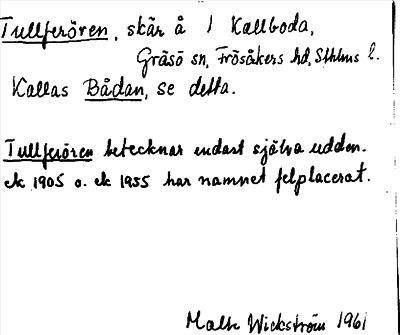 Tullferören, skär å / Kallboda,
Gräsö sn, Frösåkers hd, Sthlms l.
Kallas Bådan, se detta.
Tullferören betecknar endast själva udden.
ek 1905 o. ek 1955 har namnet felplacerat.
Malte Wickström 1961